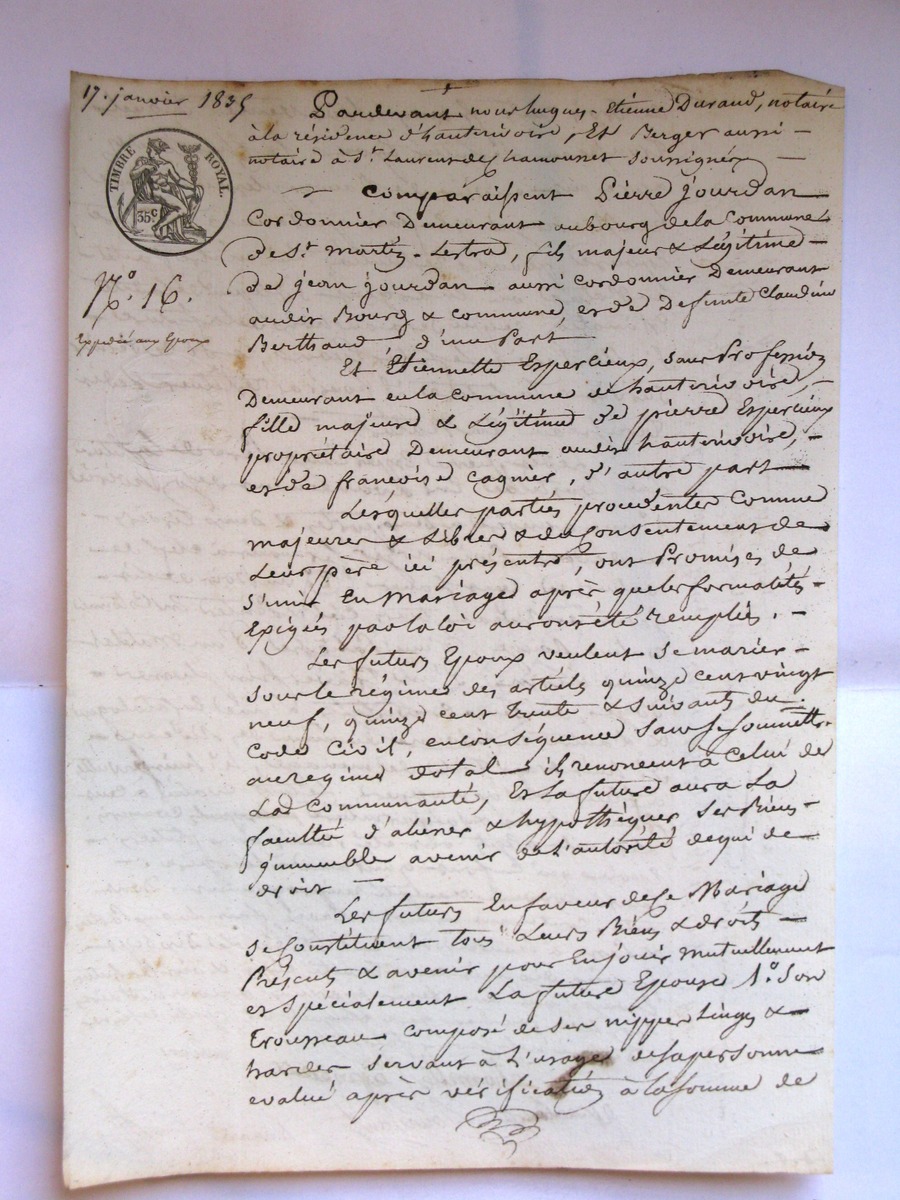 17. janvier 1835
TIMBRE ROYAL.
35c
No. 16.
Expedié aux Epoux
Pardevant nous hugues-Etienne Durand, notaire
à la résidence d'hauterivoire, Et Berger aussi
notaire à St. Laurent de Chamousset soussignés
Comparaissent Pierre Jourdan
Cordonnier Demeurant au bourg de la Commune
de St. Martin-Lestra, fils majeur & Légitime
de jean Jourdan aussi cordonnier Demeurant
audit Bourg & commune, et de Defunte Claudine
Berthaud, d'une Part
Et Etiennette Esperlieux, sans Profession
Demeurant en la commune de hauterivoire,
fille majeure & Légitime de pierre Esperlieux
propriétaire Demeurant audit hauterivoire,
et de françoise Cagnier, d'autre part
Lesquelles parties procedentes Comme
majeures & Libres & du Consentement de
Leur père ici présents, ont Promises de
s'unir En Mariage après que les formalités
Exigés par la loi auront été remplies.
Les futurs Epoux veulent se marier
sous le régime des articles quinze cent vingt
neuf, quinze cent trente & suivants du
Code Civil, en conséquence sans se soumettre
au regime dotal ils renoncent à Celui de
Lad Communauté, Et La future aura La
faculté d'aliéner & hypothéquer ses Biens
immeuble avenir de l'autorité de qui de
droit
Les futurs En faveur de Ce Mariage
se Constituent tous Leurs Biens & droits
Présents & avenir pour En jouir Mutuellement
et Spécialement La future Epouse 1o. Son
Trousseau composé de ses nippes Linges &
hardes servant à L'usage de sa personne
evalué après vérification à la somme de